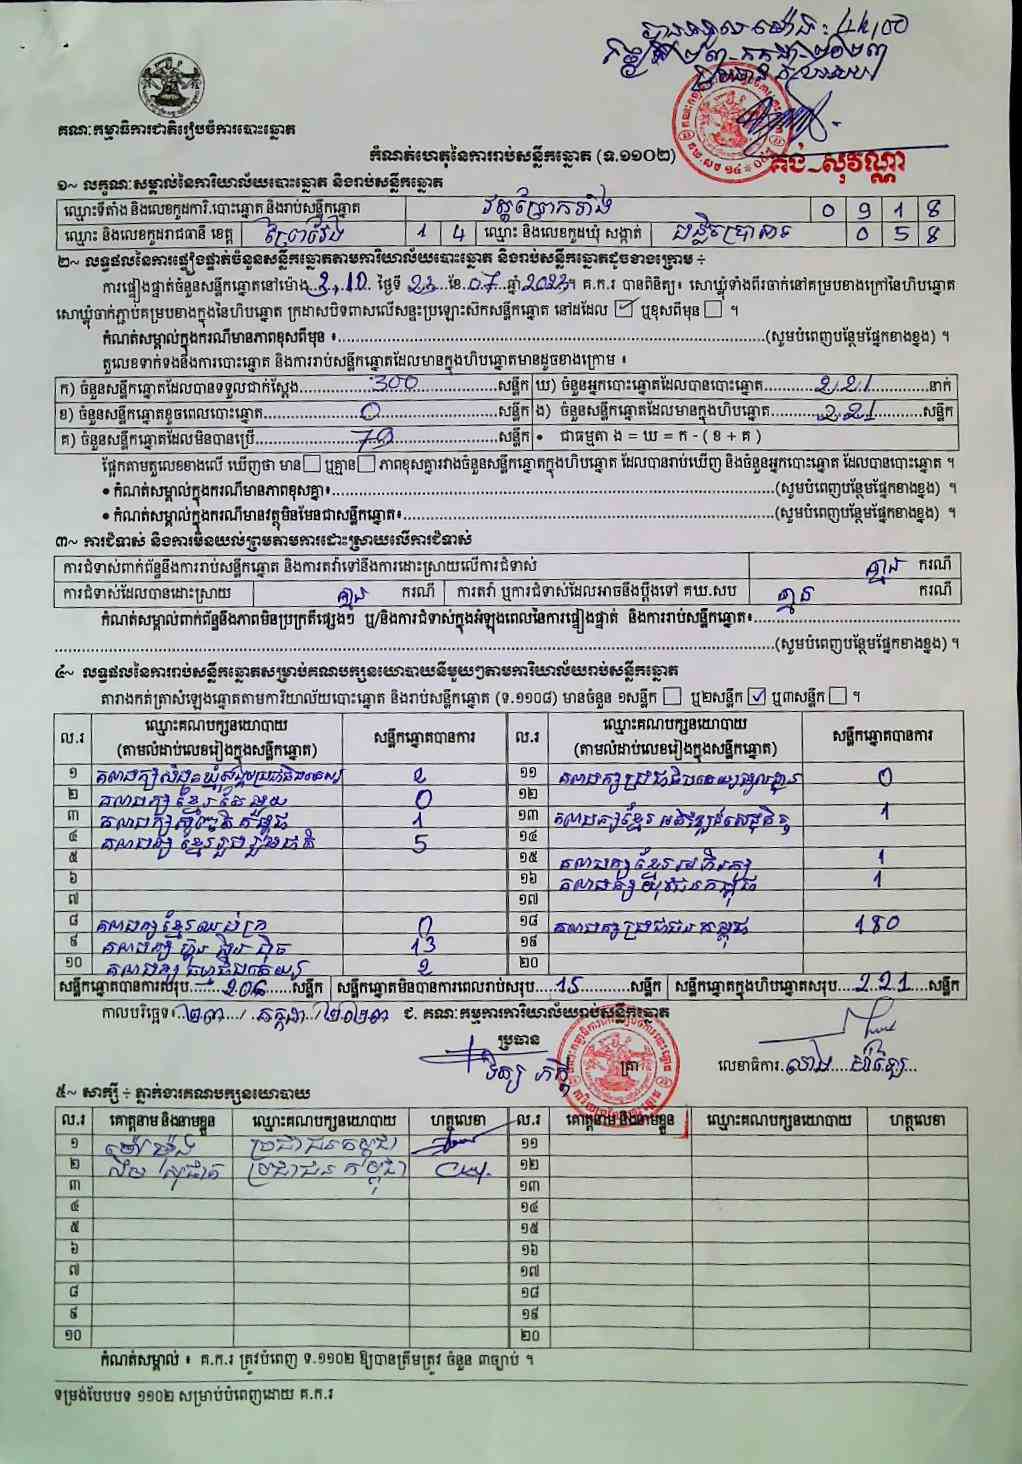 បានទទួលម៉ោង: 14:00
គណៈកម្មាធិការជាតិរៀបចំការបោះឆ្នោត
គង់ សុវណ្ណា
កំណត់ហេតុនៃការរាប់សន្លឹកឆ្នោត (ទ.១១០២)
១~ លក្ខណៈសម្គាល់នៃការិយាល័យបោះឆ្នោត និងរាប់សន្លឹកឆ្នោត
ឈ្មោះទីតាំង និងលេខកូដការិ.បោះឆ្នោត និងរាប់សន្លឹកឆ្នោត 0 9 1 8
ឈ្មោះ និងលេខកូដរាជធានី ខេត្ត ព្រៃវែង 1 4 ឈ្មោះ និងលេខកូដឃុំ សង្កាត់ 0 5 8
២~ លទ្ធផលនៃការផ្ទៀងផ្ទាត់ចំនួនសន្លឹកឆ្នោតតាមការិយាល័យបោះឆ្នោត និងរាប់សន្លឹកឆ្នោតដូចខាងក្រោម ÷
ការផ្ទៀងផ្ទាត់ចំនួនសន្លឹកឆ្នោតនៅម៉ោង 3:10 ថ្ងៃទី 23 ខែ 07 ឆ្នាំ 2023 ។ គ.ក.រ បានពិនិត្យ៖ សោឃ្លុំទាំងពីរចាក់នៅគម្របខាងក្រៅនៃហិបឆ្នោត
សោឃ្លុំចាក់ភ្ជាប់គម្របខាងក្នុងនៃហិបឆ្នោត ក្រដាសបិទពាសលើសន្ទះប្រឡោះស៊កសន្លឹកឆ្នោត នៅដដែល ☑ ឬខុសពីមុន ☐ ។
កំណត់សម្គាល់ក្នុងករណីមានភាពខុសពីមុន ៖ (សូមបំពេញបន្ថែមផ្នែកខាងខ្នង) ។
តួលេខទាក់ទងនឹងការបោះឆ្នោត និងការរាប់សន្លឹកឆ្នោតដែលមានក្នុងហិបឆ្នោតមានដូចខាងក្រោម ៖
ក) ចំនួនសន្លឹកឆ្នោតដែលបានទទួលជាក់ស្តែង 300 សន្លឹក ឃ) ចំនួនអ្នកបោះឆ្នោតដែលបានបោះឆ្នោត 221 នាក់
ខ) ចំនួនសន្លឹកឆ្នោតខូចពេលបោះឆ្នោត 0 សន្លឹក ង) ចំនួនសន្លឹកឆ្នោតដែលមានក្នុងហិបឆ្នោត 221 សន្លឹក
គ) ចំនួនសន្លឹកឆ្នោតដែលមិនបានប្រើ 79 សន្លឹក • ជាធម្មតា ង = ឃ = ក - ( ខ + គ )
ផ្អែកតាមតួលេខខាងលើ ឃើញថា មាន ☐ ឬគ្មាន ☐ ភាពខុសគ្នារវាងចំនួនសន្លឹកឆ្នោតក្នុងហិបឆ្នោត ដែលបានរាប់ឃើញ និងចំនួនអ្នកបោះឆ្នោត ដែលបានបោះឆ្នោត ។
• កំណត់សម្គាល់ក្នុងករណីមានភាពខុសគ្នា៖ (សូមបំពេញបន្ថែមផ្នែកខាងខ្នង) ។
• កំណត់សម្គាល់ក្នុងករណីមានវត្ថុមិនមែនជាសន្លឹកឆ្នោត៖ (សូមបំពេញបន្ថែមផ្នែកខាងខ្នង) ។
៣~ ការជំទាស់ និងការមិនយល់ព្រមតាមការដោះស្រាយលើការជំទាស់
ការជំទាស់ពាក់ព័ន្ធនឹងការរាប់សន្លឹកឆ្នោត និងការតវ៉ាទៅនឹងការដោះស្រាយលើការជំទាស់ គ្មាន ករណី
ការជំទាស់ដែលបានដោះស្រាយ គ្មាន ករណី ការតវ៉ា ឬការជំទាស់ដែលអាចនឹងប្តឹងទៅ គឃ.សប គ្មាន ករណី
កំណត់សម្គាល់ពាក់ព័ន្ធនឹងភាពមិនប្រក្រតីផ្សេងៗ ឬ/និងការជំទាស់ក្នុងអំឡុងពេលនៃការផ្ទៀងផ្ទាត់ និងការរាប់សន្លឹកឆ្នោត៖
(សូមបំពេញបន្ថែមផ្នែកខាងខ្នង) ។
៤~ លទ្ធផលនៃការរាប់សន្លឹកឆ្នោតសម្រាប់គណបក្សនយោបាយនីមួយៗតាមការិយាល័យរាប់សន្លឹកឆ្នោត
តារាងកត់ត្រាសំឡេងឆ្នោតតាមការិយាល័យបោះឆ្នោត និងរាប់សន្លឹកឆ្នោត (ទ.១១០៨) មានចំនួន ១សន្លឹក ☐ ឬ២សន្លឹក ☑ ឬ៣សន្លឹក ☐ ។
ល.រ ឈ្មោះគណបក្សនយោបាយ (តាមលំដាប់លេខរៀងក្នុងសន្លឹកឆ្នោត) សន្លឹកឆ្នោតបានការ ល.រ ឈ្មោះគណបក្សនយោបាយ (តាមលំដាប់លេខរៀងក្នុងសន្លឹកឆ្នោត) សន្លឹកឆ្នោតបានការ
១ គណបក្សសំបុកឃ្មុំសង្គមប្រជាធិបតេយ្យ 2 ១១ គណបក្សប្រជាធិបតេយ្យមូលដ្ឋាន 0
២ គណបក្សខ្មែរតែមួយ 0 ១២
៣ គណបក្សកម្ពុជា 1 ១៣ គណបក្សខ្មែរអភិវឌ្ឍន៍សេដ្ឋកិច្ច 1
៤ គណបក្សខ្មែររួបរួមជាតិ 5 ១៤
៥ ១៥ គណបក្សខ្មែរអភិរក្ស 1
៦ ១៦ គណបក្សយុវជនកម្ពុជា 1
៧ ១៧
៨ គណបក្សខ្មែរឈប់ក្រ 0 ១៨ គណបក្សប្រជាជនកម្ពុជា 180
៩ គណបក្សហ៊្វុនស៊ិនប៉ិច 13 ១៩
១០ គណបក្សធម្មាធិបតេយ្យ 2 ២០
សន្លឹកឆ្នោតបានការសរុប 206 សន្លឹក សន្លឹកឆ្នោតមិនបានការពេលរាប់សរុប 15 សន្លឹក សន្លឹកឆ្នោតក្នុងហិបឆ្នោតសរុប 221 សន្លឹក
កាលបរិច្ឆេទ៖ ២៣ / កក្កដា / ២០២៣ ជ. គណៈកម្មការការិយាល័យរាប់សន្លឹកឆ្នោត
ប្រធាន
ត្រា លេខាធិការ
៥~ សាក្សី ÷ ភ្នាក់ងារគណបក្សនយោបាយ
ល.រ គោត្តនាម និងនាមខ្លួន ឈ្មោះគណបក្សនយោបាយ ហត្ថលេខា ល.រ គោត្តនាម និងនាមខ្លួន ឈ្មោះគណបក្សនយោបាយ ហត្ថលេខា
១ ប្រជាជនកម្ពុជា ១១
២ ប្រជាជនកម្ពុជា ១២
៣ ១៣
៤ ១៤
៥ ១៥
៦ ១៦
៧ ១៧
៨ ១៨
៩ ១៩
១០ ២០
កំណត់សម្គាល់ ៖ គ.ក.រ ត្រូវបំពេញ ទ.១១០២ ឱ្យបានត្រឹមត្រូវ ចំនួន ៣ច្បាប់ ។
ទម្រង់បែបបទ ១១០២ សម្រាប់បំពេញដោយ គ.ក.រ